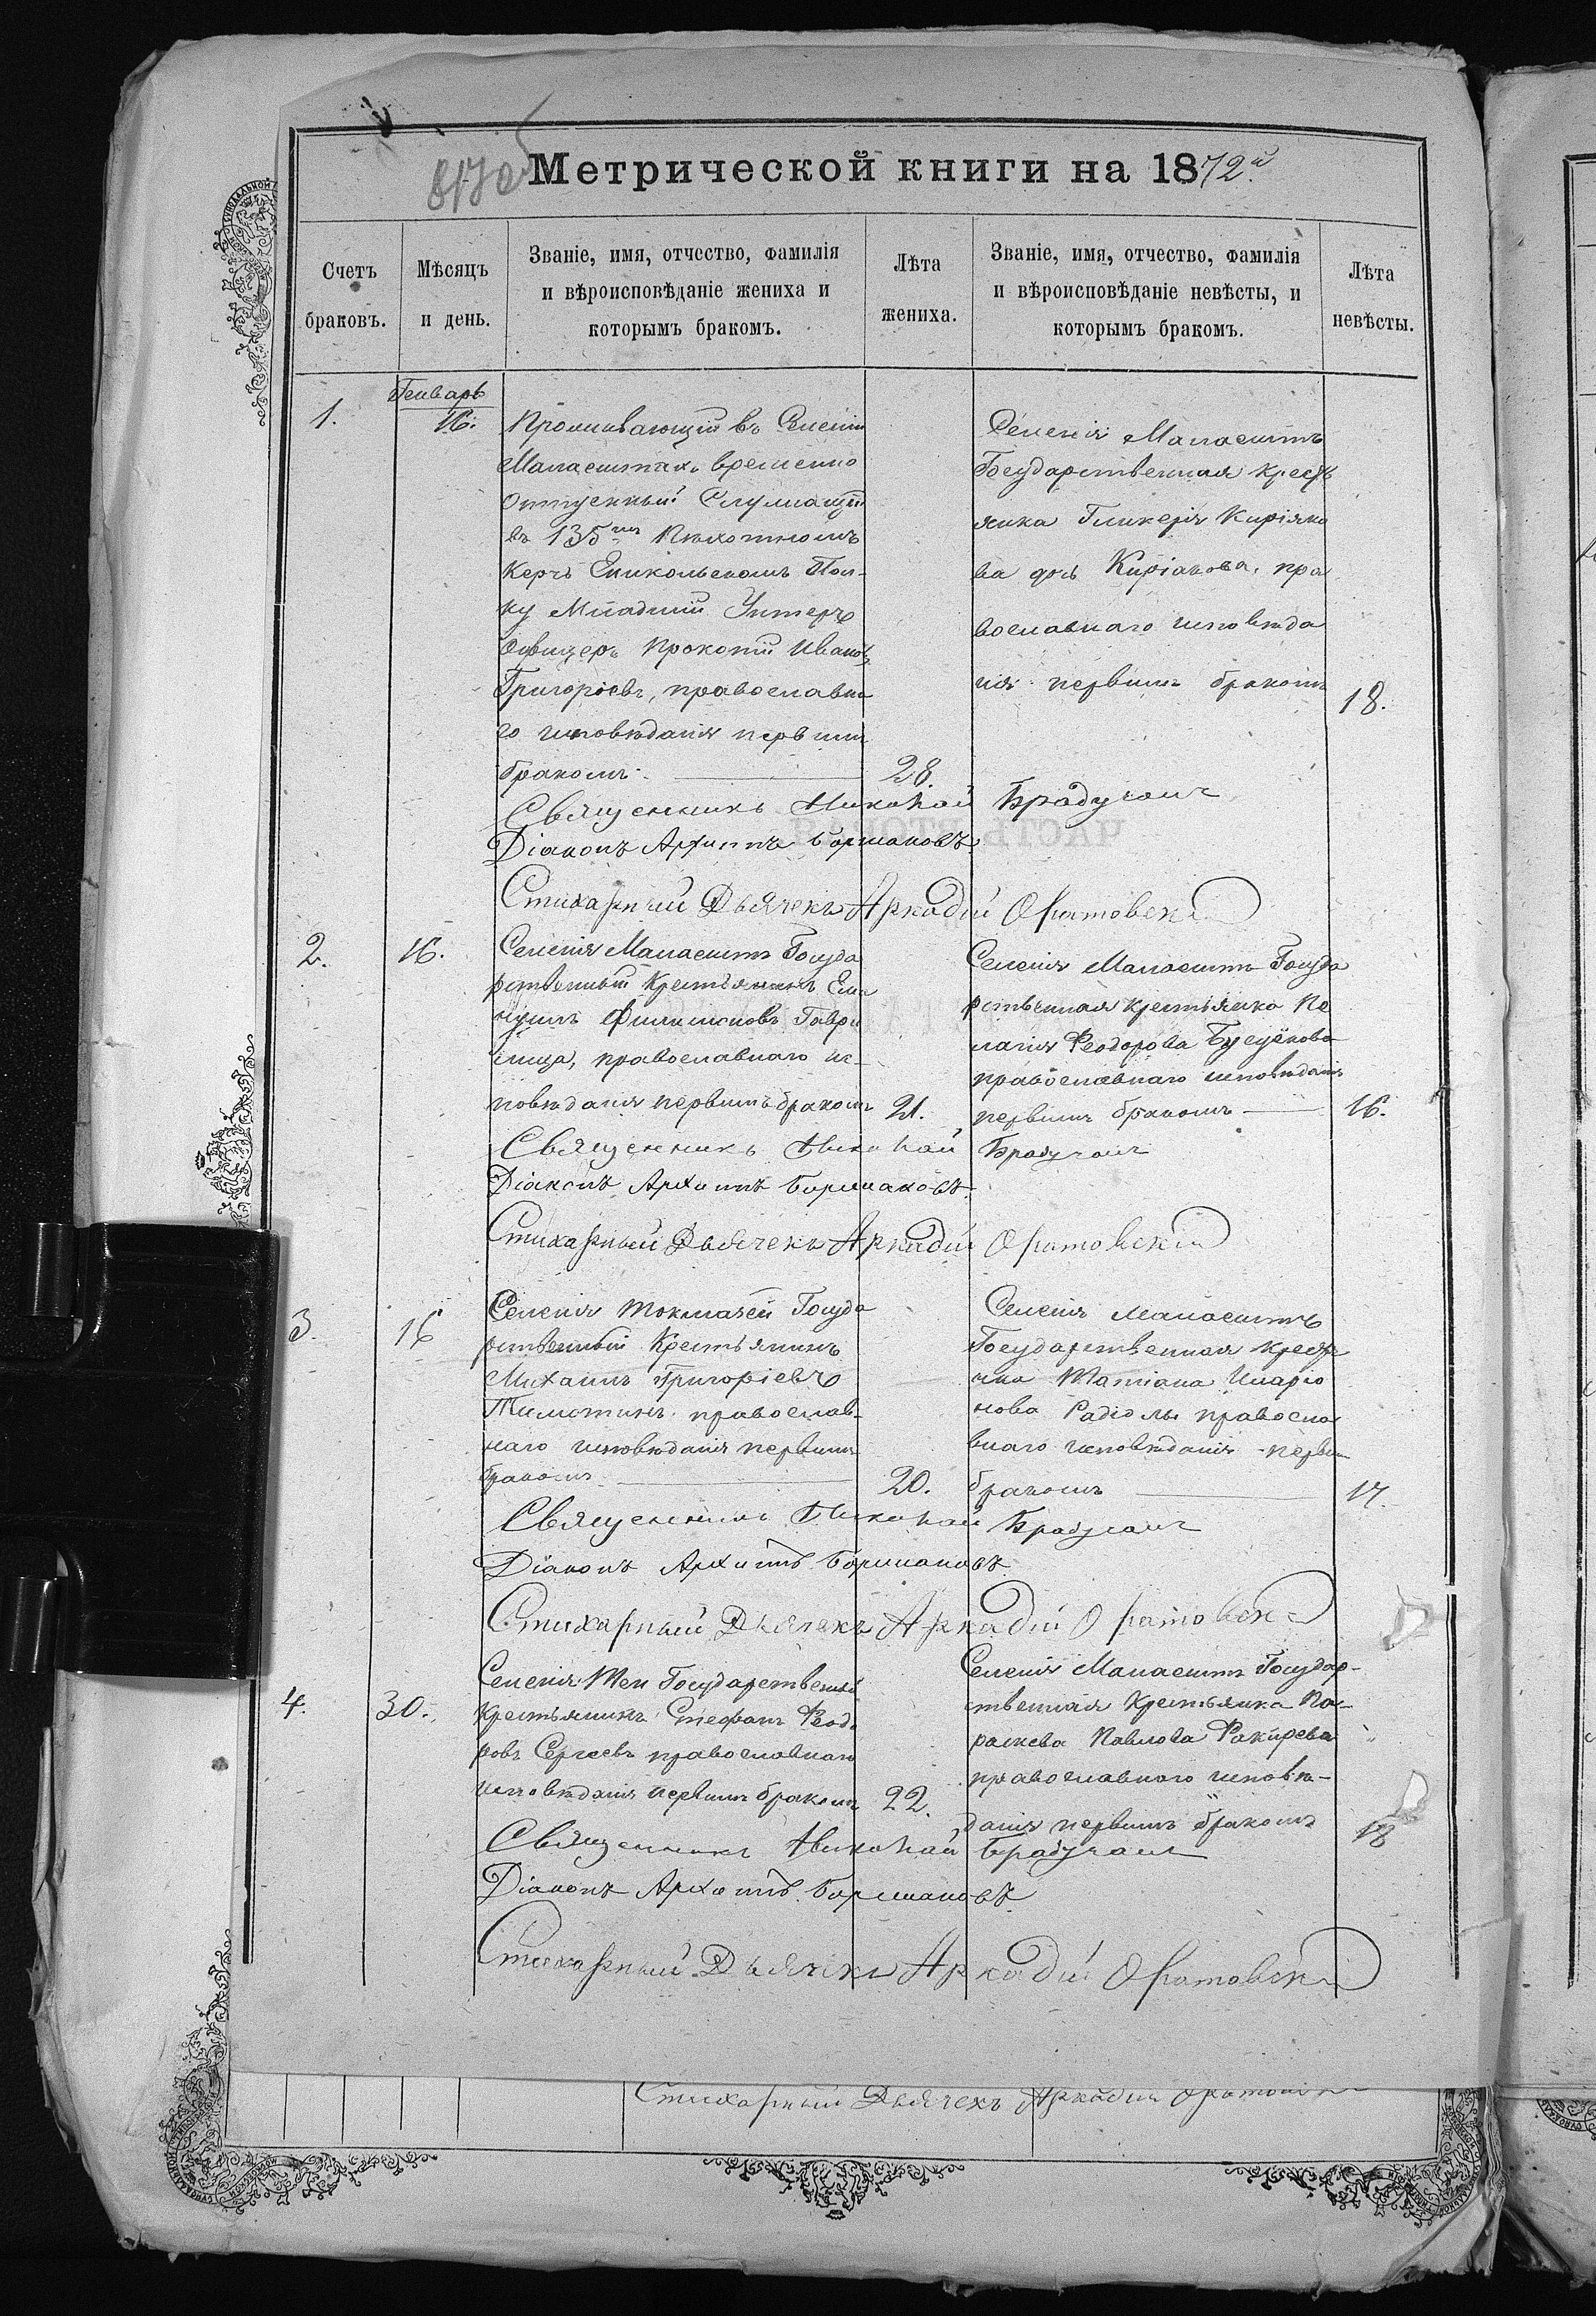 Метрической книги на 1872й
Счетъ браковъ.
Мѣсяцъ и день.
Званіе, имя, отчество, фамилія
и вѣроисповѣданіе жениха и
которымъ бракомъ.
Лѣта
жениха.
Званіе, имя, отчество, фамилія
и вѣроисповѣданіе невѣсты, и
которымъ бракомъ.
Лѣта
невѣсты.
Генварь
1.
16.
Проживающій въ Селеніи
Малаештахъ временно
отпускный Служащій
въ 135мъ Пѣхотномъ
Керчъ Еникольскомъ Пол-
ку Младшій Унтеръ
Офицеръ Прокопій Ивановъ
Григоріевъ, православна
го исповѣданія первымъ
бракомъ.
28.
Селенія Малаештъ
Государственная крестья
янка Гликерія Киріяко
ва дочь Киріакова, пра
вославнаго исповѣда
нія первымъ бракомъ
18.
Священникъ Николай Брадучанъ
Діаконъ Архиппъ Боршаковъ.
Стихарный Дьячекъ Аркадій Оратовскій
2.
16.
Селенія Малаештъ Госуда
рственный Крестьянинъ Ема
нуилъ Филимоновъ Гаври
лица, православнаго ис-
повѣданія первымъ бракомъ
21.
Селенія Малаештъ Госуда
рственная крестьянка Пе
лагія Феодорова Бусуёкова
православнаго исповѣданія
первымъ бракомъ
16.
Священникъ Николай Брадучанъ
Діаконъ Архиппъ Боршаковъ.
Стихарный Дьячекъ Аркадій Оратовскій
3.
16
Селенія Токмазей Госуда
рственный Крестьянинъ
Михаилъ Григоріевъ
Тимотинъ православ-
наго исповѣданія первымъ
бракомъ
20.
Селенія Малаештъ
Государственная крестья
нка Татіана Иларіо
нова Радіолы правосла
внаго исповѣданія первым
бракомъ
17.
Священникъ Николай Брадучанъ
Діаконъ Архиппъ Боршаковъ
Стихарный Дьячекъ Аркадій Оратовскій
4.
30.
Селенія Теи Государственый
Крестьянинъ Стефанъ Феодо
ровъ Сергеевъ православнаго
исповѣданія первымъ бракомъ
22.
Селенія Малаештъ Государ-
ственная Крестьянка Па-
раскева Павлова Ракирева
православнаго исповѣ-
данія первымъ бракомъ
18
Священникъ Николай Брадучанъ
Діаконъ Архиппъ Боршаковъ
Стихарный Дьячекъ Аркадій Оратовскій
Стихарный Дьячекъ Аркадій Оратовскій